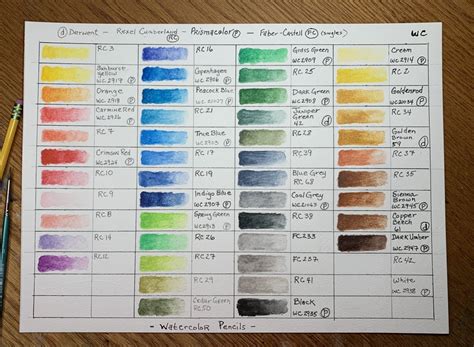 ⓓ Derwent - Rexel Cumberland RC - Prismacolor Ⓟ - Faber-Castell FC (singles)
WC
RC 3
RC 16
Grass Green
WC2909 Ⓟ
Cream
WC2914 Ⓟ
Sunburst
yellow
WC2917 Ⓟ
Copenhagen
WC2906 Ⓟ
RC 25
RC 2
Orange
WC2918 Ⓟ
Peacock Blue
Ⓟ
Dark Green
WC2908 Ⓟ
Goldenrod
WC20034 Ⓟ
Carmine Red
WC2926 Ⓟ
RC 21
Juniper
Green
42 ⓓ
RC 34
RC 7
True Blue
WC2903 Ⓟ
RC 28
Golden
Brown
59 ⓓ
Crimson Red
WC2924 Ⓟ
RC 17
RC 39
RC 37
RC 10
RC 19
Blue Grey
RC 68
RC 35
RC 9
Indigo Blue
WC2907 Ⓟ
Cool Grey
Ⓟ
Sienna
Brown
WC2945 Ⓟ
RC 8
Spring Green
WC2913 Ⓟ
RC 38
Copper
Beech
61 ⓓ
RC 14
RC 26
FC 233
Dark Umber
WC2947 Ⓟ
RC 12
RC 27
FC 237
RC 42
RC 29
RC 41
White
WC 2938 Ⓟ
Cedar Green
RC 50
Black
WC2935 Ⓟ
- Watercolor Pencils -